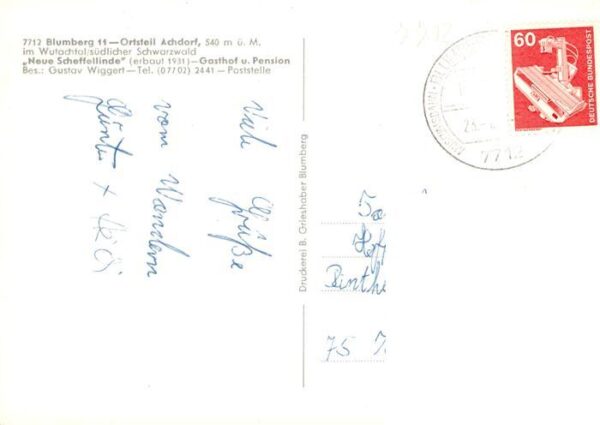 7712 Blumberg 11—Ortsteil Achdorf, 540 m ü. M.
im Wutachtal/südlicher Schwarzwald
„Neue Scheffellinde" (erbaut 1931)—Gasthof u. Pension
Bes.: Gustav Wiggert—Tel. (07702) 2441—Poststelle
Viele Grüße
vom Wandern
Günter +
Druckerei B. Grieshaber Blumberg
60
DEUTSCHE BUNDESPOST
7712
75